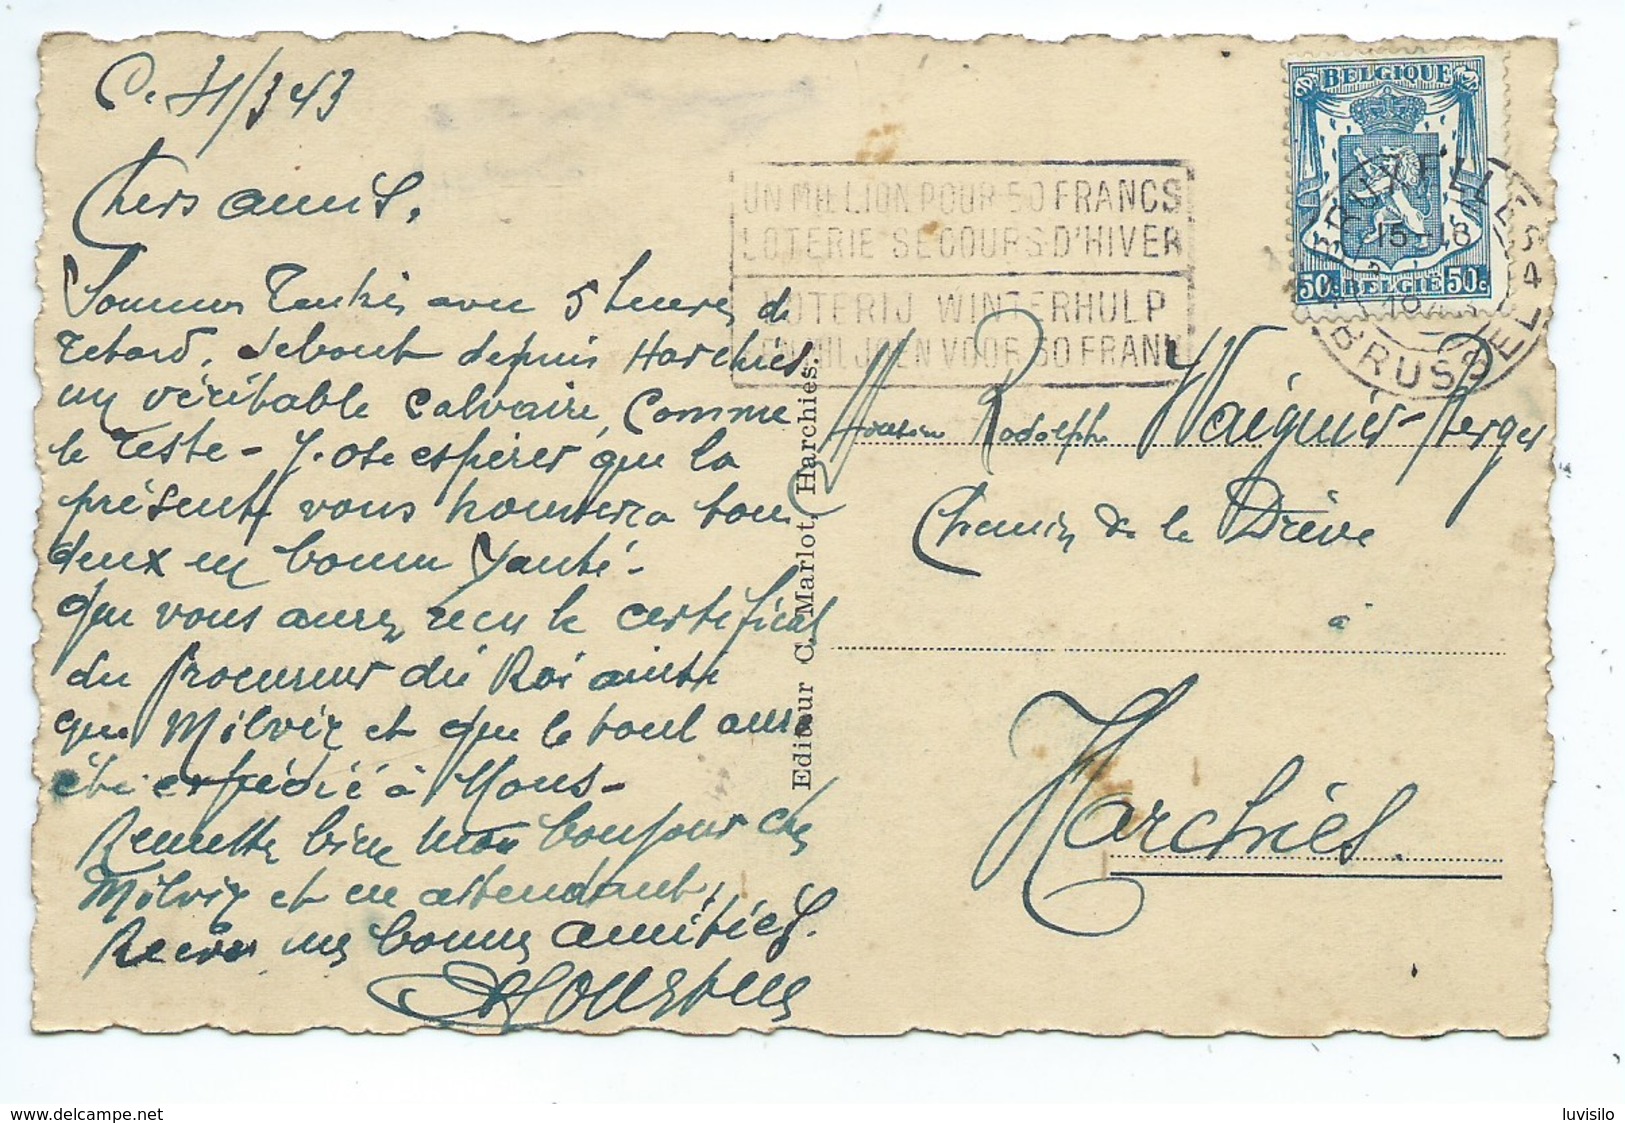 Chers amis,
Sommes rentrés avec 5 heures de
retard, debout depuis Harchies
un véritable calvaire, comme
le reste - J'ose espérer que la
présente vous trouvera tous
deux en bonne santé -
que vous aurez reçu le certificat
du Procureur du Roi ainsi
que Milviz et que le tout aura
été expédié à Mons -
Remettez bien mon bonjour chez
Milviz et en attendant,
Recevez mes bonnes amitiés.
Editeur C. Marlot, Harchies.
UN MILLION POUR 50 FRANCS
LOTERIE SECOURS D'HIVER
LOTERIJ WINTERHULP
EEN MILJOEN VOOR 50 FRANK
BELGIQUE
50c BELGIË 50c
BRUXELLES
15-18
BRUSSEL
4
Monsieur Rodolphe
Chemin de la Drève
à
Harchies.
luvisilo
delcampe.net